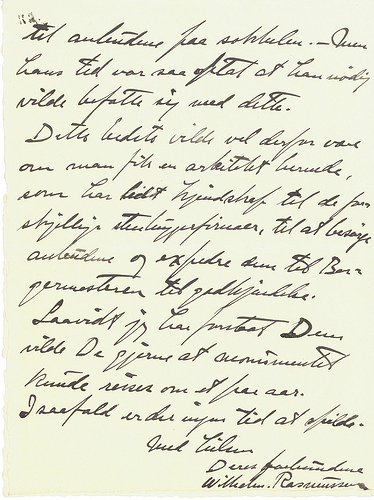 til anbudene paa sokkelen. – Men
hans tid var saa optat at han nödig
vilde befatte sig med dette.
Dets bedste vilde vel derfor være
om man fik en arkitekt herinde,
som har lidt kjendskap til de for-
skjellige stenhuggerfirmaer, til at besørge
anbudene og expedere dem til Bor-
germesteren til godkjendelse.
Saavidt jeg har forstaat Dem
vilde De gjerne at monumentet
kunde reises om et par aar.
I saafald er der ingen tid at spilde.
Med hilsen
Deres forbundne
Wilhelm Rasmussen